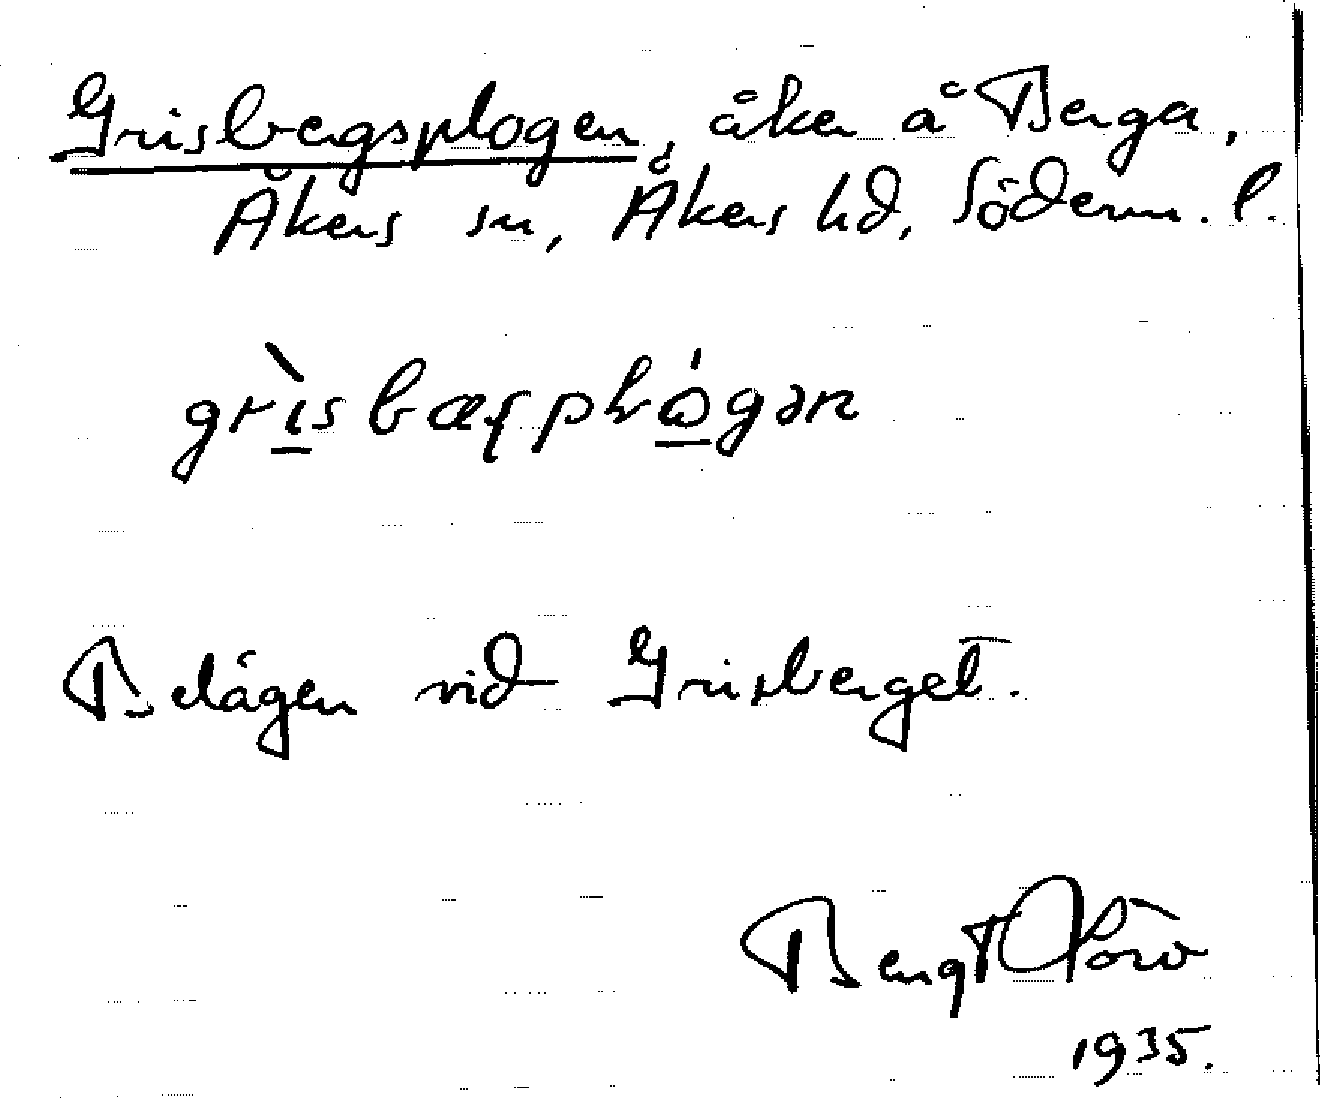 Grisbergsplogen, åker å Berga,
Åkers sn, Åkers hd, Söderm. l.
Belägen vid Grisberget.
Bengt
1935.